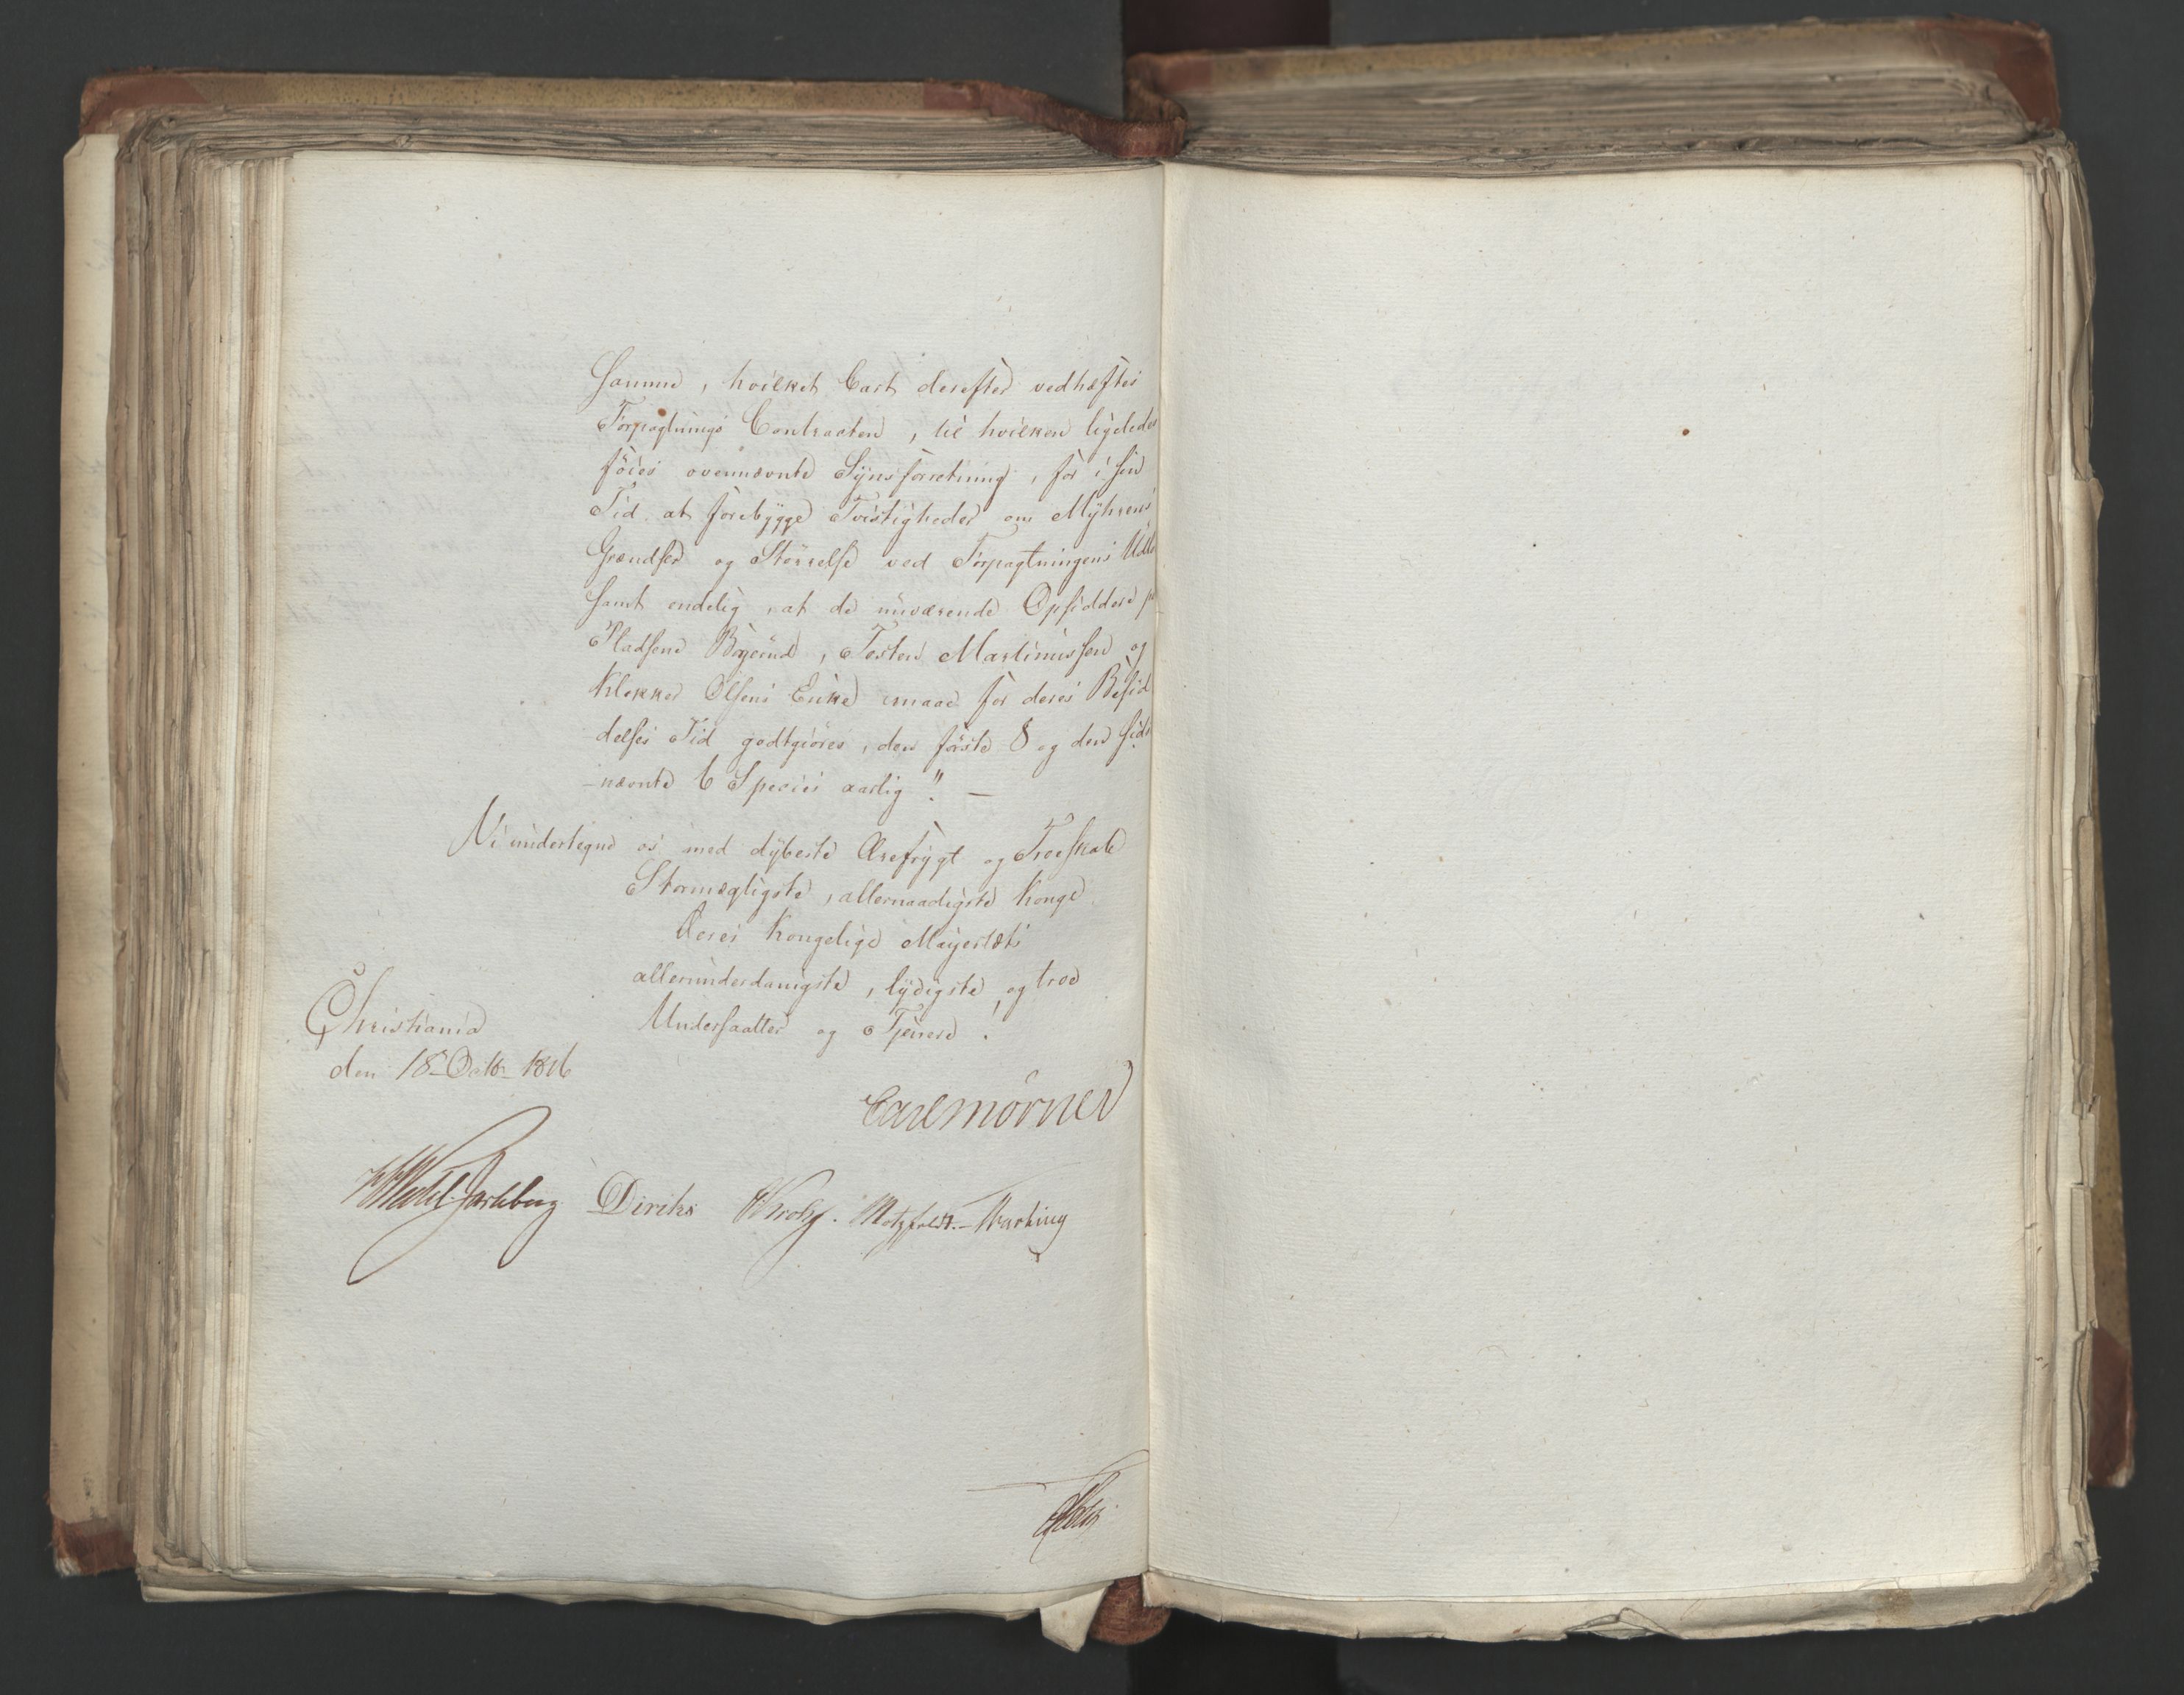 samme, hvilket Cart derefter vedhæftes
Forpagtnings Contracten, til hvilken ligeledes
föies ovennævnte Synsforretning, for i sin
Tid at forebygge Tvistigheder om Myhrens
Grændser og Störrelse ved Forpagtningens Udlö
samt endelig, at de nuværende Opsiddere p
Pladsene, Testen Martinussen og
Klekker Olsens Enke maae for deres Besid
delses Tid godtgiöres, den förste 8 og den sidst
nævnte 6 Species aarlig". —
Vi undertegne os med dybeste Ærefrygt og Troeskab
Stormægtigste, allernaadigste Konge
Deres Kongelige Majestæts
allerunderdanigste, lydigste og troe
Undersaatter og Tjenere.
Christiania
den 18 Octbr 1816
Carl Mörner
Wedel Jarlsberg Diriks Krohg. Motzfeldt. —